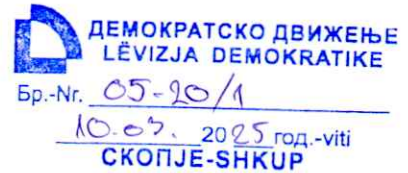 ДЕМОКРАТСКО ДВИЖЕЊЕ
LËVIZJA DEMOKRATIKE
Бр.-Nr. 05-20/1
10.03. 2025 год.-viti
СКОПЈЕ-SHKUP